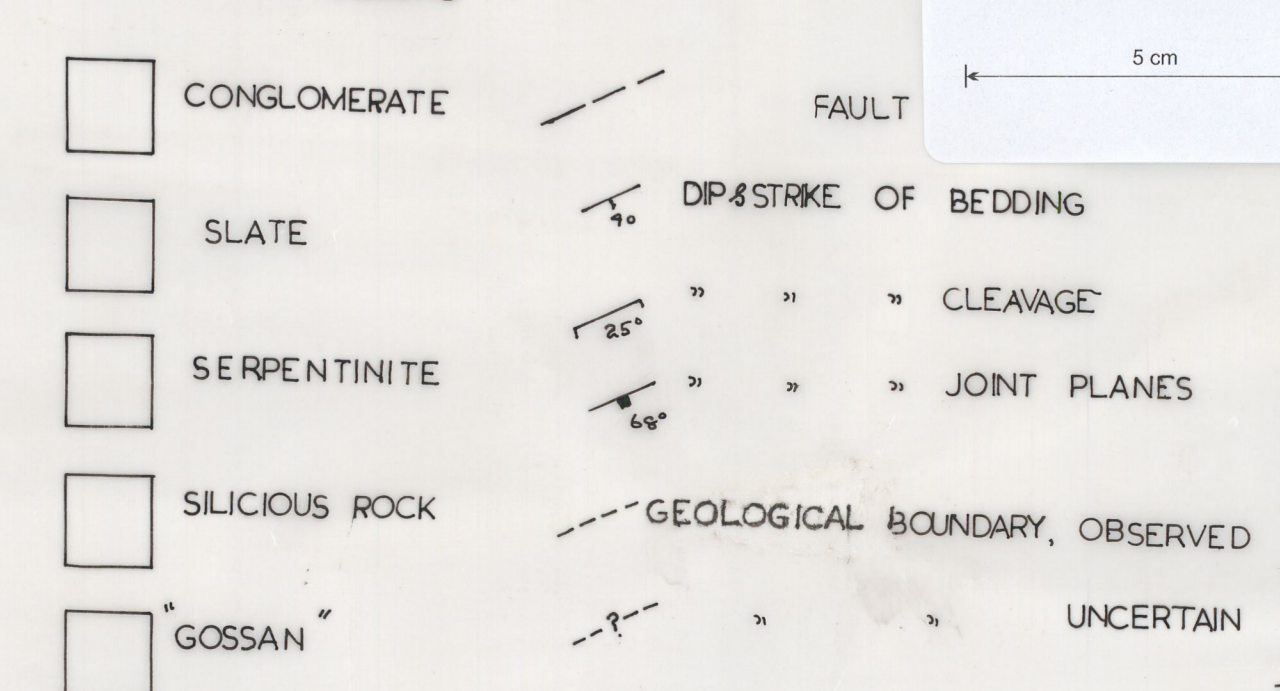 CONGLOMERATE
SLATE
SERPENTINITE
SILICIOUS ROCK
"GOSSAN"
FAULT
40 DIP & STRIKE OF BEDDING
25° " " " CLEAVAGE
68° " " " JOINT PLANES
GEOLOGICAL BOUNDARY, OBSERVED
? " " UNCERTAIN
5 cm